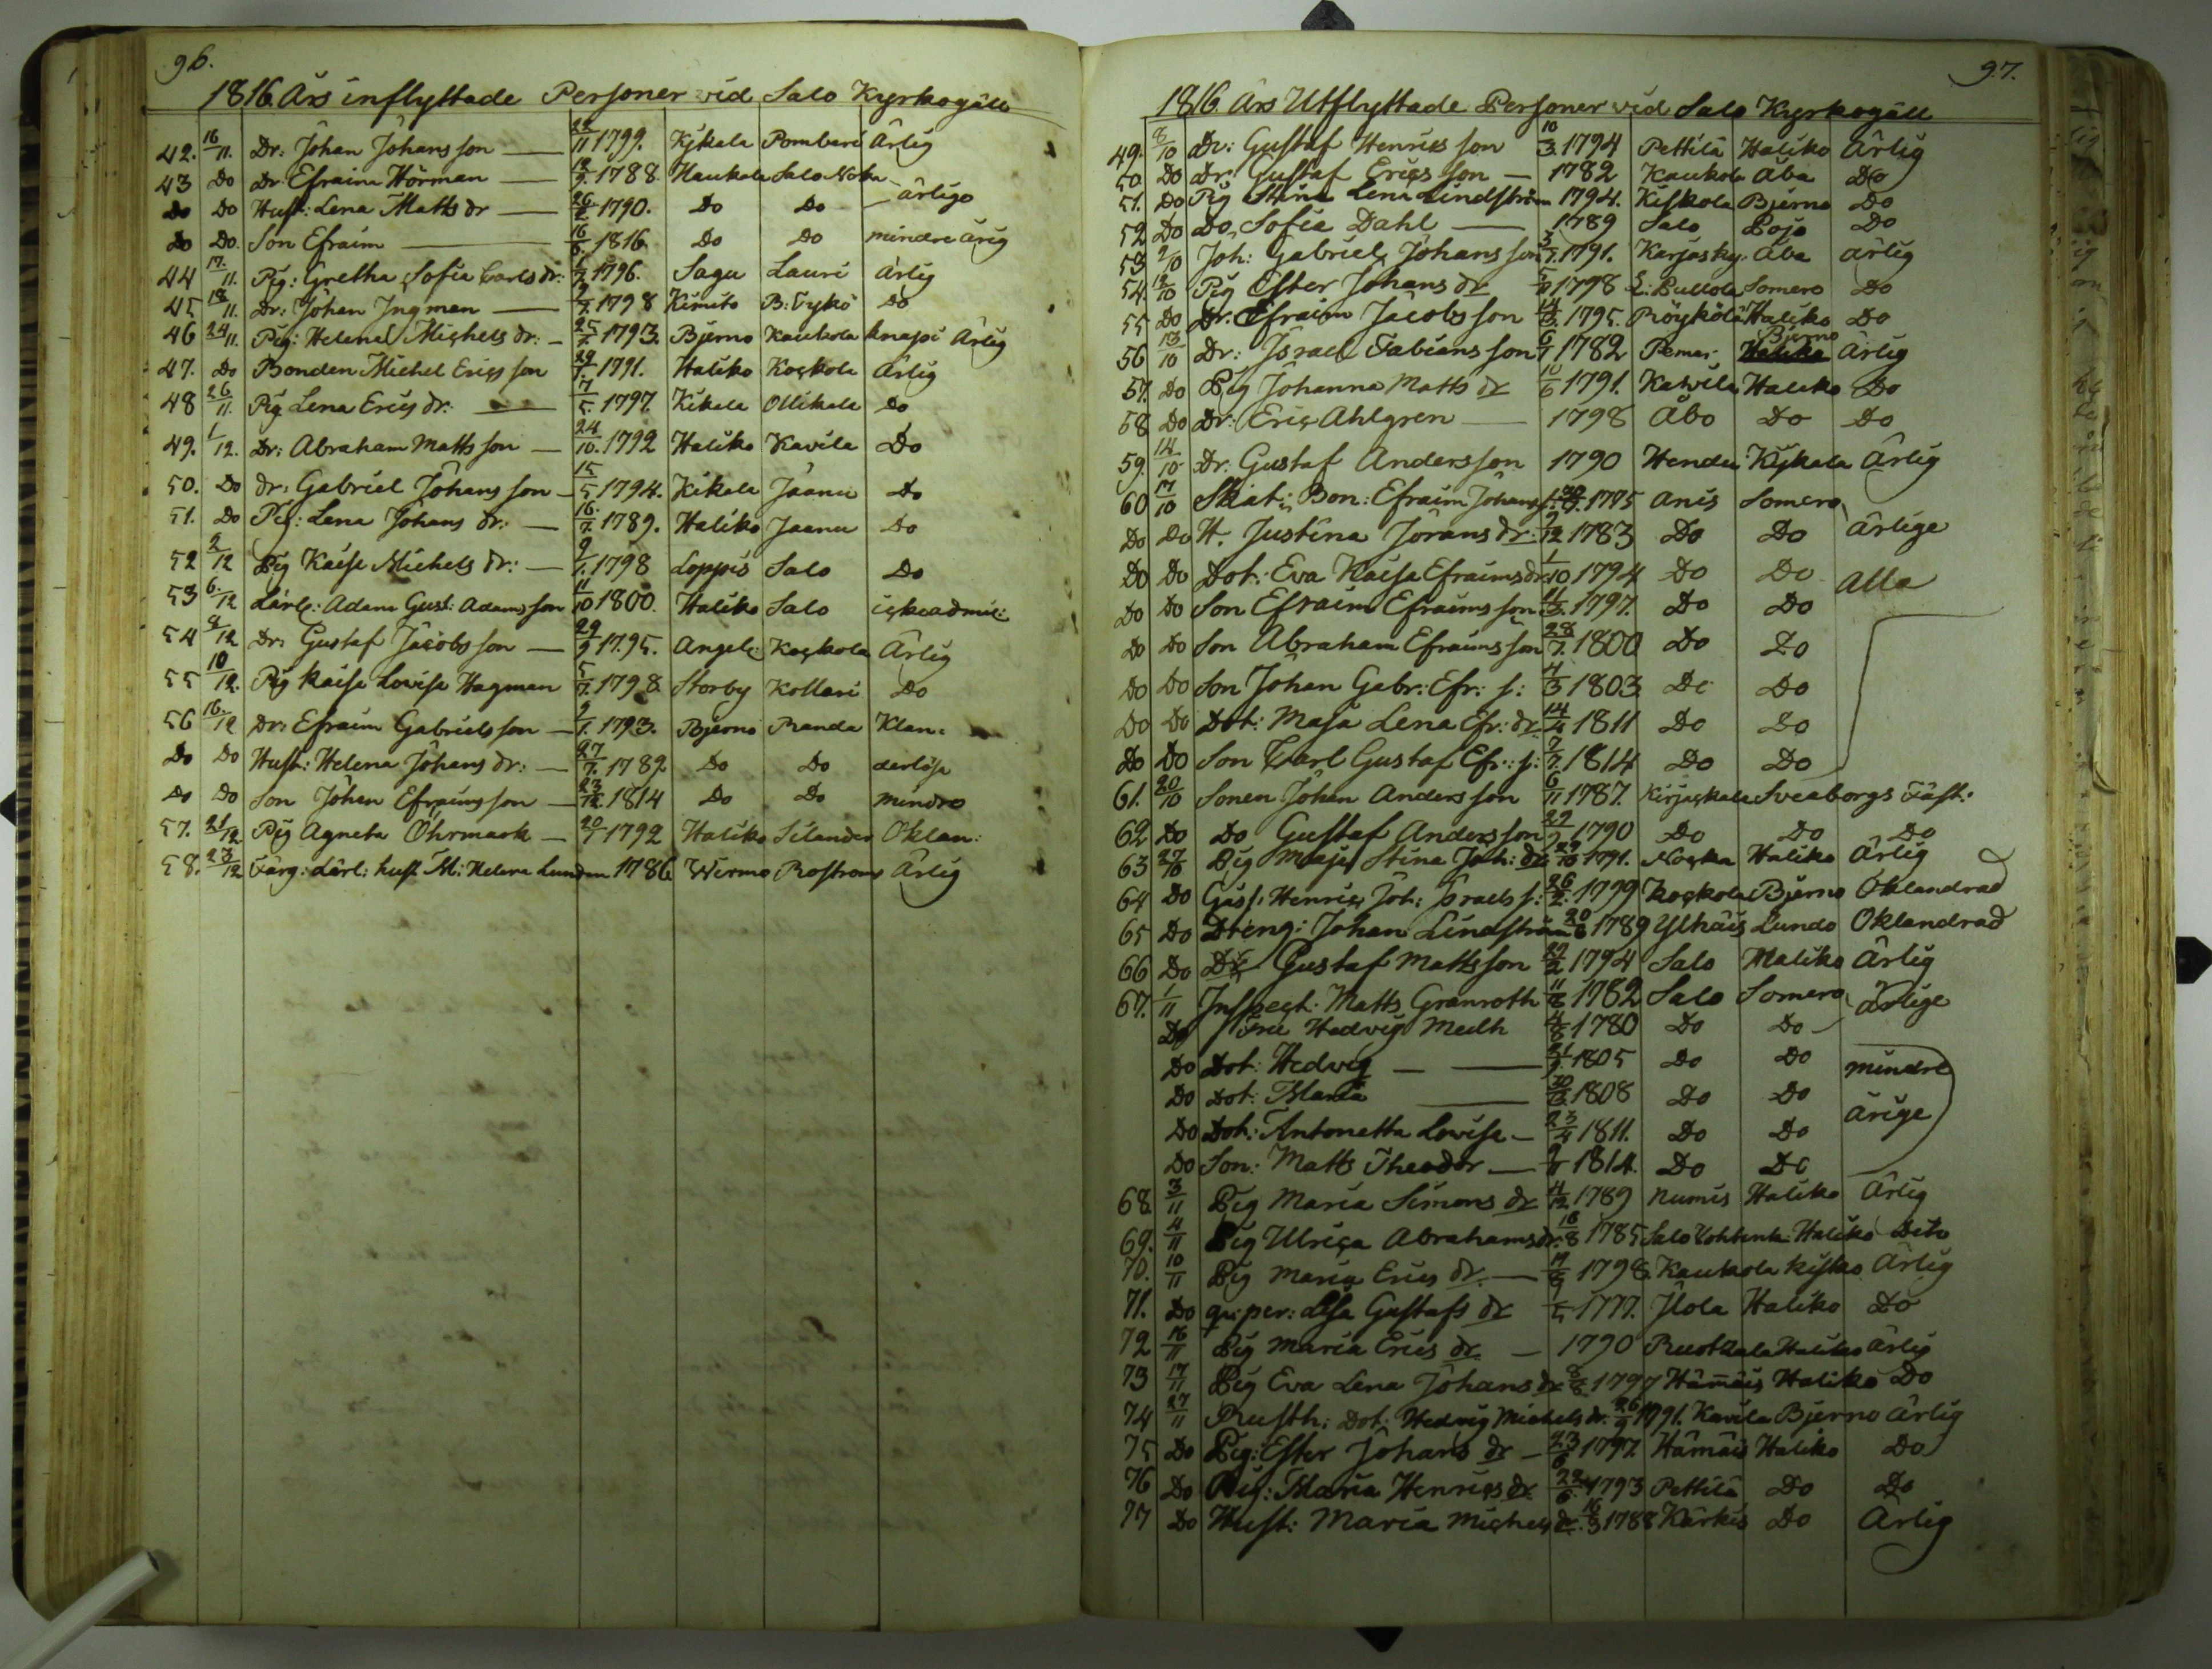 96.
1816 Års inflyttade Personer vid Salo Kyrkogäll
42. 16/11. Dr: Johan Johansson — 22/11 1799. Kjkala Pomberi Ärlig
43 Do Dr Efraim Hörman — 1788 Kaukola Salo
Do Do Hust: Lena Matts dr — 26/2. 1790. Do Do ärlige
Do Do. Son Efraim — 16/6. 1816. Do Do mindre årig
44 17./11. Pig: Gretha Sofia Carls dr: 1796. Sagu Lauri Ärlig
45 18/11. Dr: Johan Ingman — 1798 Kimito B: Tykö Do
46 24/11. Pig: Helena Michels dr: — 25/7. 1793. Bjerno Kaukola knapt Ärlig
47. Do Bonden Michel Ericsson 29/9. 1791. Haliko Kockola Ärlig
48 26/11. Pig Lena Erics dr: — 7/5. 1797. Kikala Ollikala Do
49. 1/12. Dr: Abraham Mattsson — 24/10. 1792 Haliko Kavila Do
50. Do dr: Gabriel Johansson — 15/5 1794. Kikala Jaanu Do
51. Do Pig: Lena Johans dr: — 16./7. 1789. Haliko Jaanu Do
52 2/12 Pig Kaise Michels dr: — 9/1. 1798 Loppis Salo Do
53 6./12 Lärl: Adam Gust: Adamsson 11/10 1800. Haliko Salo
54 8/12 Dr: Gustaf Jacobsson — 29/9 1795. Angel: Kockola Ärlig
55 10/12. Pig Kaisa Lovisa Hagman 5/7. 1798. Storby Kollari Do
56 16./12 Dr: Efraim Gabrielsson — 9/1. 1793. Bjerno Randa Klan=
Do Do Hust: Helena Johans dr: — 27/7. 1782 Do Do derlöse
Do Do Son Johan Efraimsson — 23/12. 1814 Do Do mindre
57. 21/12 Pig Agneta Öhrmark — 20/1 1792 Haliko Silander Oklan:
58. 23/12 Färg: Lärl: hust M: Helena Lundin 1786 Wirmo Rostroms Ärlig
97.
1816 Års Utflyttade Personer vid Salo Kyrkogäll
49. 8/10 Dr: Gustaf Henricsson 10/3. 1794 Pettilä Haliko Ärlig
50 Do Dr: Gustaf Ericsson — 1782 Kaukola Åbo Do
51. Do Pig Stina Lena Lindström 1794. Kiskola Bjerno Do
52 Do Do Sofia Dahl — 1789 Salo Pojo Do
53 9/10 Joh: Gabriel Johansson 1791. Karjasky. Åbo ärlig
54. 12/10 Pig Ester Johans dr 1798 Somero Do
55 Do Dr: Efraim Jacobsson 14/3. 1795. Röykölä Haliko Do
56 13/10 Dr: Israel Fabiansson 6/1 1782 Pemar Bjerno Ärlig
57. Do Pig Johanna Matts dr 10/6 1791. Katvila Haliko Do
58 Do Dr: Eric Ahlgren — 1798 Åbo Do Do
59. 14/10 Dr. Gustaf Andersson 1790 Kjkala Ärlig
60 17/10 Skat: Bon: Efraim Johanss: 1775 Anis Somero
Do Do H. Justina Jörans dr: 9/12 1783 Do Do ärlige
Do Do Dot: Eva Kaisa Efraims dr: 1/10 1794 Do Do alla
Do Do Son Efraim Efraimsson 11/3. 1797. Do Do
Do Do Son Abraham Efraimsson 28/7. 1800 Do Do
Do Do Son Johan Gabr: Efr: s: 4/3 1803 Do Do
Do Do Dot: Maja Lena Efr: dr 14/4 1811 Do Do
Do Do Son Carl Gustaf Efr: s: 7/7. 1814 Do Do
61. 20/10 Sonen Johan Andersson 6/11 1787. Kirjackala Sveaborgs Fäst.
62 Do Do Gustaf Andersson 1790 Do Do Do
63 27/10 Pig Maja Stina Joh: dr 1791. Nocka Haliko Ärlig
64 Do Gäst. Henric Joh: Israels s: 26/2. 1799 Kockola Bjerno Oklandrad
65 Do Dreng: Johan Lindström 20/6 1789 Ylhäis Lundo Oklandrad
66 Do Dr Gustaf Mattsson 22/2 1794 Salo Haliko Ärlig
67. 1/11 Inspect. Matts Granroth 11/8 1782 Salo Somero ärlige
Do Fru Hedvig Meelh 4/8 1780 Do Do
Do Dot: Hedvig — 21/9. 1805 Do Do mindre
Do Dot: Maria — 1808 Do Do årige
Do Dot: Antonetta Lovisa — 23/4 1811. Do Do
Do Son: Matts Theodor — 1814. Do Do
68. 3/11 Pig Maria Simons dr 4/12 1789 Numis Haliko Ärlig
69. 4/11 Pig Ulrica Abrahams dr: 16/8 1785 Salo Haliko Dito
70. 10/11 Pig Maria Erics dr. — 1798. Kaukola Kisko Ärlig
71. Do qv:per: Lisa Gustafs dr 9/5 1777. Ilola Haliko Do
72 16/11 Pig Maria Erics dr. — 1790 Ruotkala Haliko Ärlig
73 17/11 Pig Eva Lena Johans dr 8/8 1797 Hämäis Haliko Do
74 27/11 Rusth: Dot: Hedvig Michels dr. 26/9 1791. Kavila Bjerno Ärlig
75 Do Pig: Ester Johans dr — 23/6 1797. Hämäis Haliko Do
76 Do Pig: Maria Henrics dr 22/6. 1793 Pettilä Do Do
77 Do Hust: Maria Michels dr. 16/3 1788 Kärkis Do Ärlig